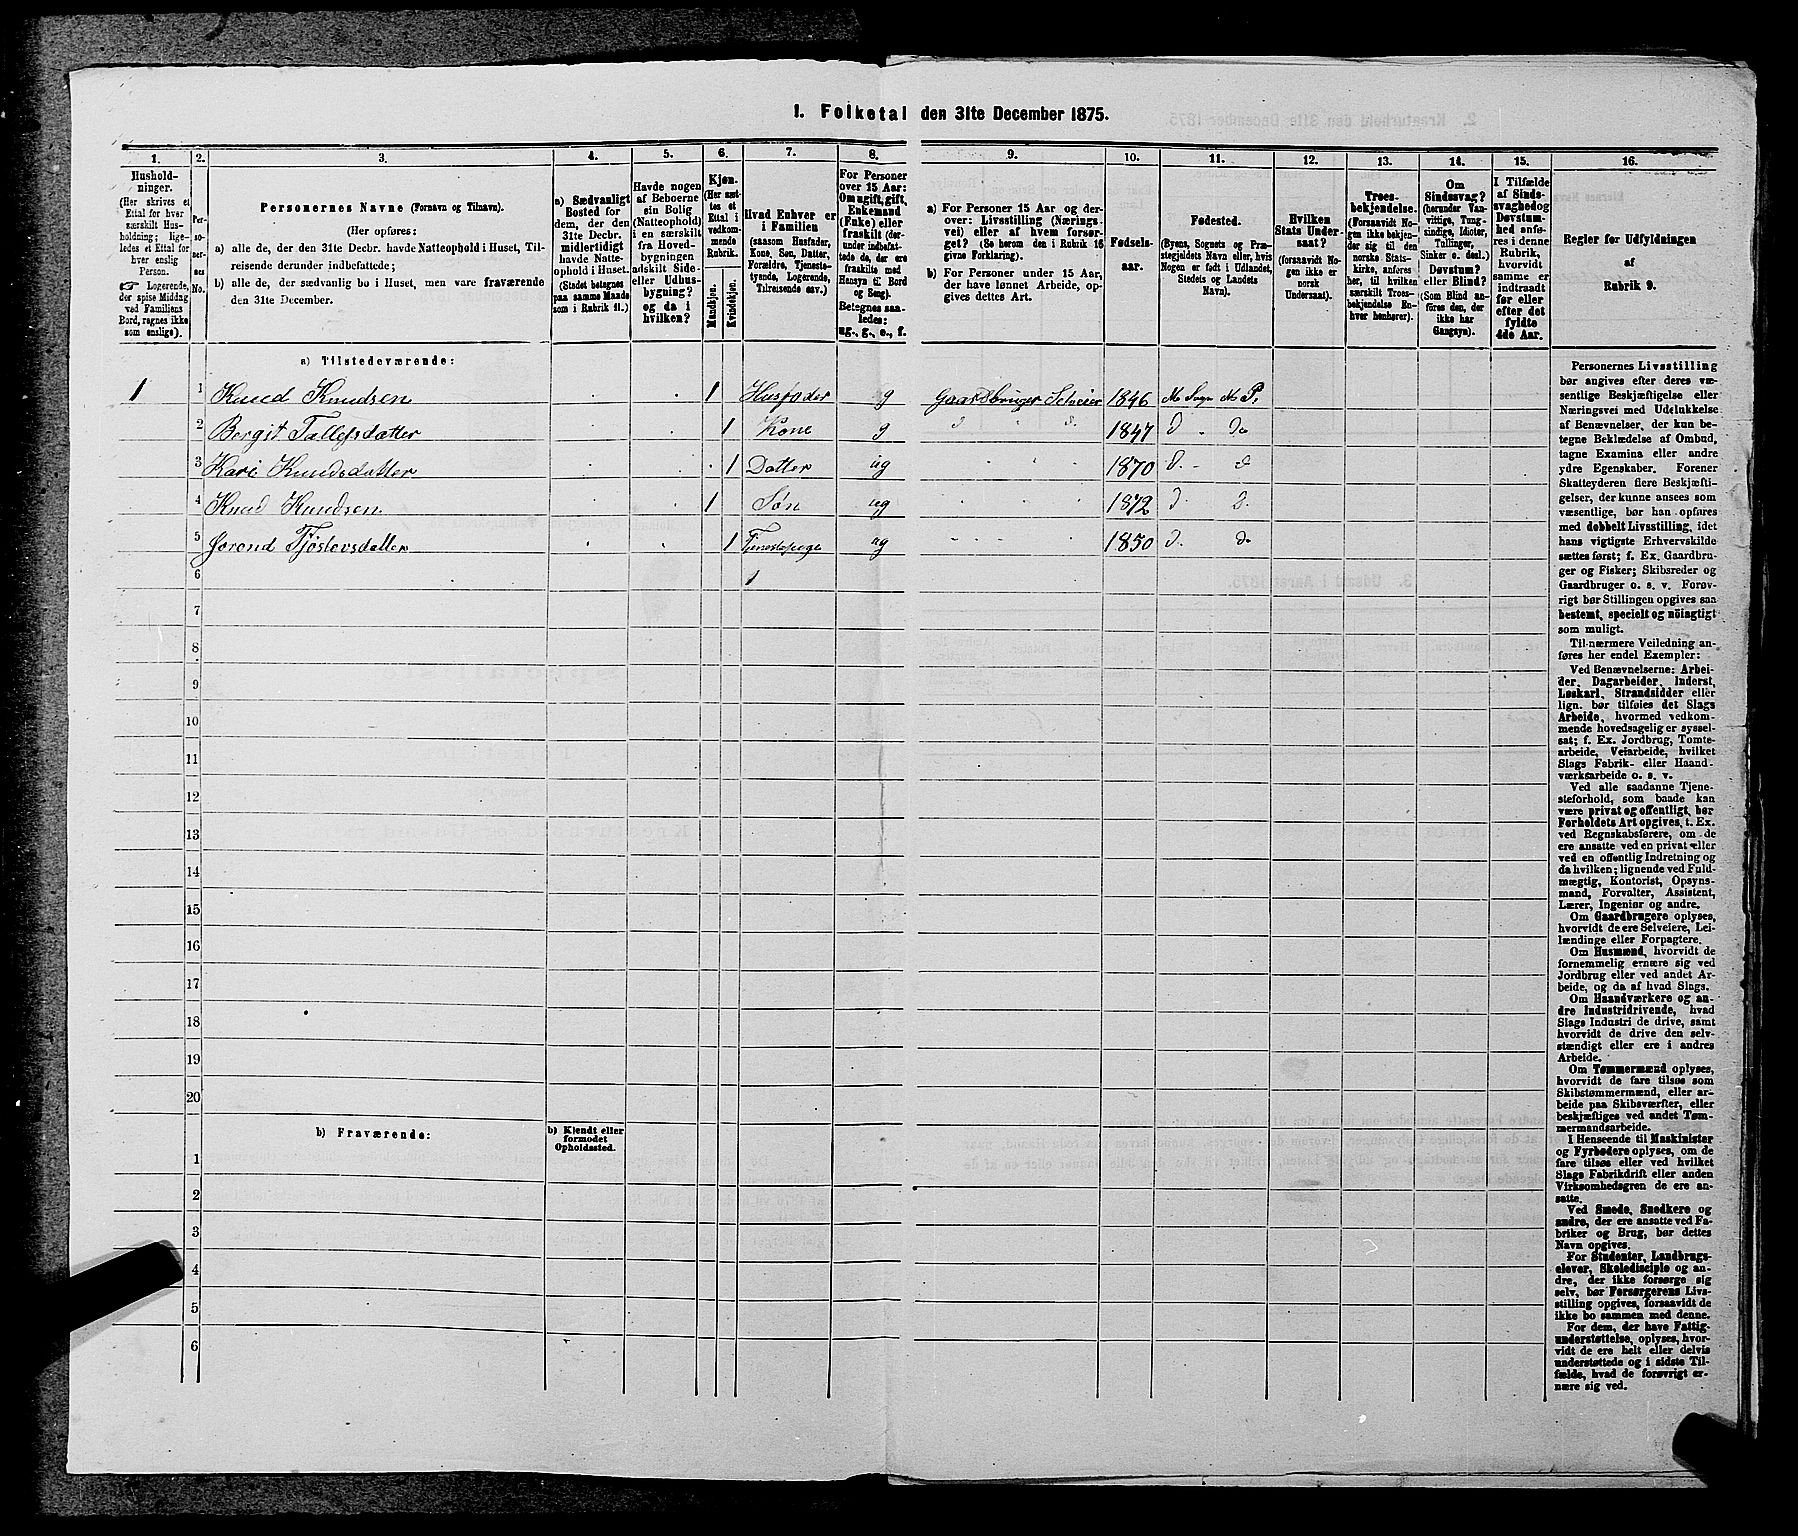 1. Folketal den 31te December 1875.
1. 2. 3. 4. 5. 6. 7. 8. 9. 10. 11. 12. 13. 14. 15. 16.
Hushold-
ninger.
(Her skrives et
Ettal for hver
særskilt Hus-
holdning; lige-
ledes et Ettal for
hver enslig
Person.
☞ Logerende,
der spise Middag
ved Familiens
Bord, regnes ikke
som enslige).
Per-
so-
ner-
nes
No.
Personernes Navne (Fornavn og Tilnavn).
(Her opføres:
a) alle de, der den 31te Decbr. havde Natteophold i Huset, Til-
reisende derunder indbefattede;
b) alle de, der sædvanlig bo i Huset, men vare fraværende
den 31te December.
a) Sædvanligt
Bosted for
dem, der den
31te Decbr.
midlertidigt
havde Natte-
ophold i Huset.
(Stedet betegnes
paa samme Maade
som i Rubrik 11.)
Havde nogen
af Beboerne
sin Bolig
(Natteophold)
i en særskilt
fra Hoved-
bygningen
adskilt Side-
eller Udhus-
bygning?
og da i
hvilken?
Kjøn.
(Her sæt-
tes et
Ettal i
vedkom-
mende
Rubrik.
Mandkjøn.
Kvindekjøn.
Hvad Enhver er
i Familien
(saasom Husfader,
Kone, Søn, Datter,
Forældre, Tjeneste-
tyende, Logerende,
Tilreisende osv.)
For Personer
over 15 Aar:
Om ugift, gift,
Enkemand
(Enke) eller
fraskilt (der-
under indbefat-
tede de, der ere
fraskilte med
Hensyn til Bord
og Seng).
Betegnes saa-
ledes:
ug., g., e., f.
a) For Personer 15 Aar og der-
over: Livsstilling (Nærings-
vei) eller af hvem forsør-
get? (Se herom den i Rubrik 16
givne Forklaring).
b) For Personer under 15 Aar,
der have lønnet Arbeide, op-
gives dettes Art.
Fødsels-
aar.
Fødested.
(Byens, Sognets og Præ-
stegjeldets Navn eller, hvis
Nogen er født i Udlandet,
Stedets og Landets
Navn).
Hvilken
Stats Under-
saat?
(forsaavidt No-
gen ikke er
norsk
Undersaat).
Troes-
bekjendelse.
(Forsaavidt No-
gen ikke bekjen-
der sig til den
norske Stats-
kirke, anføres
her, til hvilken
særskilt Troes-
bekjendelse En-
hver henhører).
Om
Sindssvag?
(herunder Van-
vittige, Tung-
sindige, Idioter,
Tullinger,
Sinker o. desl.)
Døvstum?
eller Blind?
(Som Blind an-
føres den, der
ikke har
Gangsyn).
I Tilfælde
af Sinds-
svaghed og
Døvstum-
hed anfø-
res i denne
Rubrik,
hvorvidt
samme er
indtraadt
før eller
efter det
fyldte
4de Aar.
Regler for Udfyldningen
af
Rubrik 9.
a) Tilstedeværende:
1 1 Knud Knudsen 1 Husfader g Gaardbruger Selveier 1846 M Sogn M P.
2 Bergit Tallefsdatter 1 Kone g " " d. 1847 d - do
3 Kari Knudsdatter 1 Datter ug " " " 1870 d. - d
4 Knud Knudsen 1 Søn ug " " " 1872 d d.
5 Jorond Tjøstovsdatter 1 Tjenestepige ug " " " 1850 d. do
6
7
8
9
10
11
12
13
14
15
16
17
18
19
20
b) Fraværende:
b) Kjendt eller
formodet
Opholdssted.
1
2
3
4
5
6
Personernes Livsstilling
bør angives efter deres væ-
sentlige Beskjæftigelse eller
Næringsvei med Udelukkelse
af Benævnelser, der kun be-
tegne Beklædelse af Ombud,
tagne Examina eller andre
ydre Egenskaber. Forener
Skatteyderen flere Beskjæfti-
gelser, der kunne ansees som
væsentlige, bør han opføres
med dobbelt Livsstilling, idet
hans vigtigste Erhvervskilde
sættes først; f. Ex. Gaardbru-
ger og Fisker; Skibsreder og
Gaardbruger o. s. v. Forøv-
rigt bør Stillingen opgives saa
bestemt, specielt og nöiagtigt
som muligt.
Til nærmere Veiledning an-
føres her endel Exempler:
Ved Benævnelserne: Arbei-
der, Dagarbeider, Inderst,
Løskarl, Strandsidder eller
lign. bør tilføies det Slags
Arbeide, hvormed vedkom-
mende hovedsagelig er syssel-
sat; f. Ex. Jordbrug, Tomte-
arbeide, Veiarbeide, hvilket
Slags Fabrik- eller Haand-
værksarbeide o. s. v.
Ved alle saadanne Tjene-
steforhold, som baade kan
være privat og offentligt, bør
Forholdets Art opgives, t. Ex.
ved Regnskabsførere, om de
ere ansatte ved en privat eller
ved en offentlig Indretning og
da hvilken; lignende ved Fuld-
mægtig, Kontorist, Opsyns-
mand, Forvalter, Assistent,
Lærer, Ingeniør og andre.
Om Gaardbrugere oplyses,
hvorvidt de ere Selveiere, Lei-
lændinge eller Forpagtere.
Om Husmænd, hvorvidt de
fornemmelig ernære sig ved
Jordbrug eller ved andet Ar-
beide, og da af hvad Slags.
Om Haandværkere og an-
dre Industridrivende, hvad
Slags Industri de drive, samt
hvorvidt de drive den selv-
stændigt eller ere i andres
Arbeide.
Om Tømmermænd oplyses,
hvorvidt de fare tilsøs som
Skibstømmermænd, eller ar-
beide paa Skibsværfter, eller
beskjæftiges ved andet Tøm-
mermandsarbeide.
I Henseende til Maskinister
og Fyrbødere oplyses, om de
fare tilsøs eller ved hvilket
Slags Fabrikdrift eller anden
Virksomhedsgren de ere an-
satte.
Ved Smede, Snedkere og
andre, der ere ansatte ved Fa-
briker og Brug, bør dettes
Navn opgives.
For Studenter, Landbrugs-
elever, Skoledisciple og an-
dre, der ikke forsørge sig
selv, bør Forsørgerens Livs-
stilling opgives, forsaavidt de
ikke bo sammen med denne.
For dem, der have Fattig-
understøttelse, oplyses, hvor-
vidt de ere helt eller delvis
understøttede og i sidste Til-
fælde, hvad de forøvrigt er-
nære sig ved.